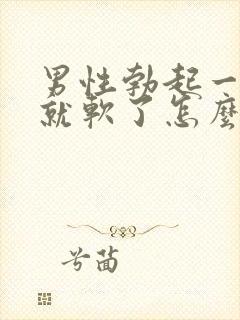 男性勃起一
就軟了怎麼
兮茴